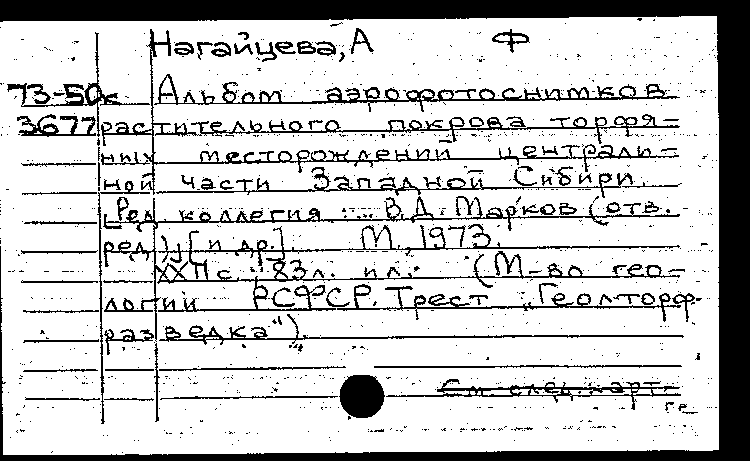 Нагайцева, А Ф
73-50к Альбом аэрофотоснимков
3677 растительного покрова торфя=
ных месторождений централи=
ной части Западной Сибири.
[Ред. коллегия: ... В.Д. Марков (отв.
ред.)] [и др.]. М., 1973.
XXII с.; 83л. ил.; (М-во гео=
логии РСФСР. Трест „Геолторф-
разведка").
См. след. карт-
ге